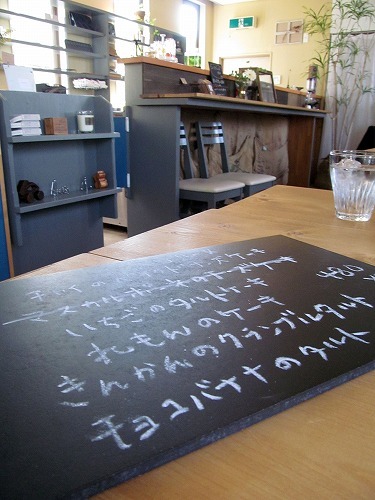 マスカルポーネのチーズケーキ
いちごのタルトケーキ
れもんのケーキ 480
きんかんのクランブルタルト
チョコバナナのタルト